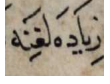 زِيَادَه لَعِنَه